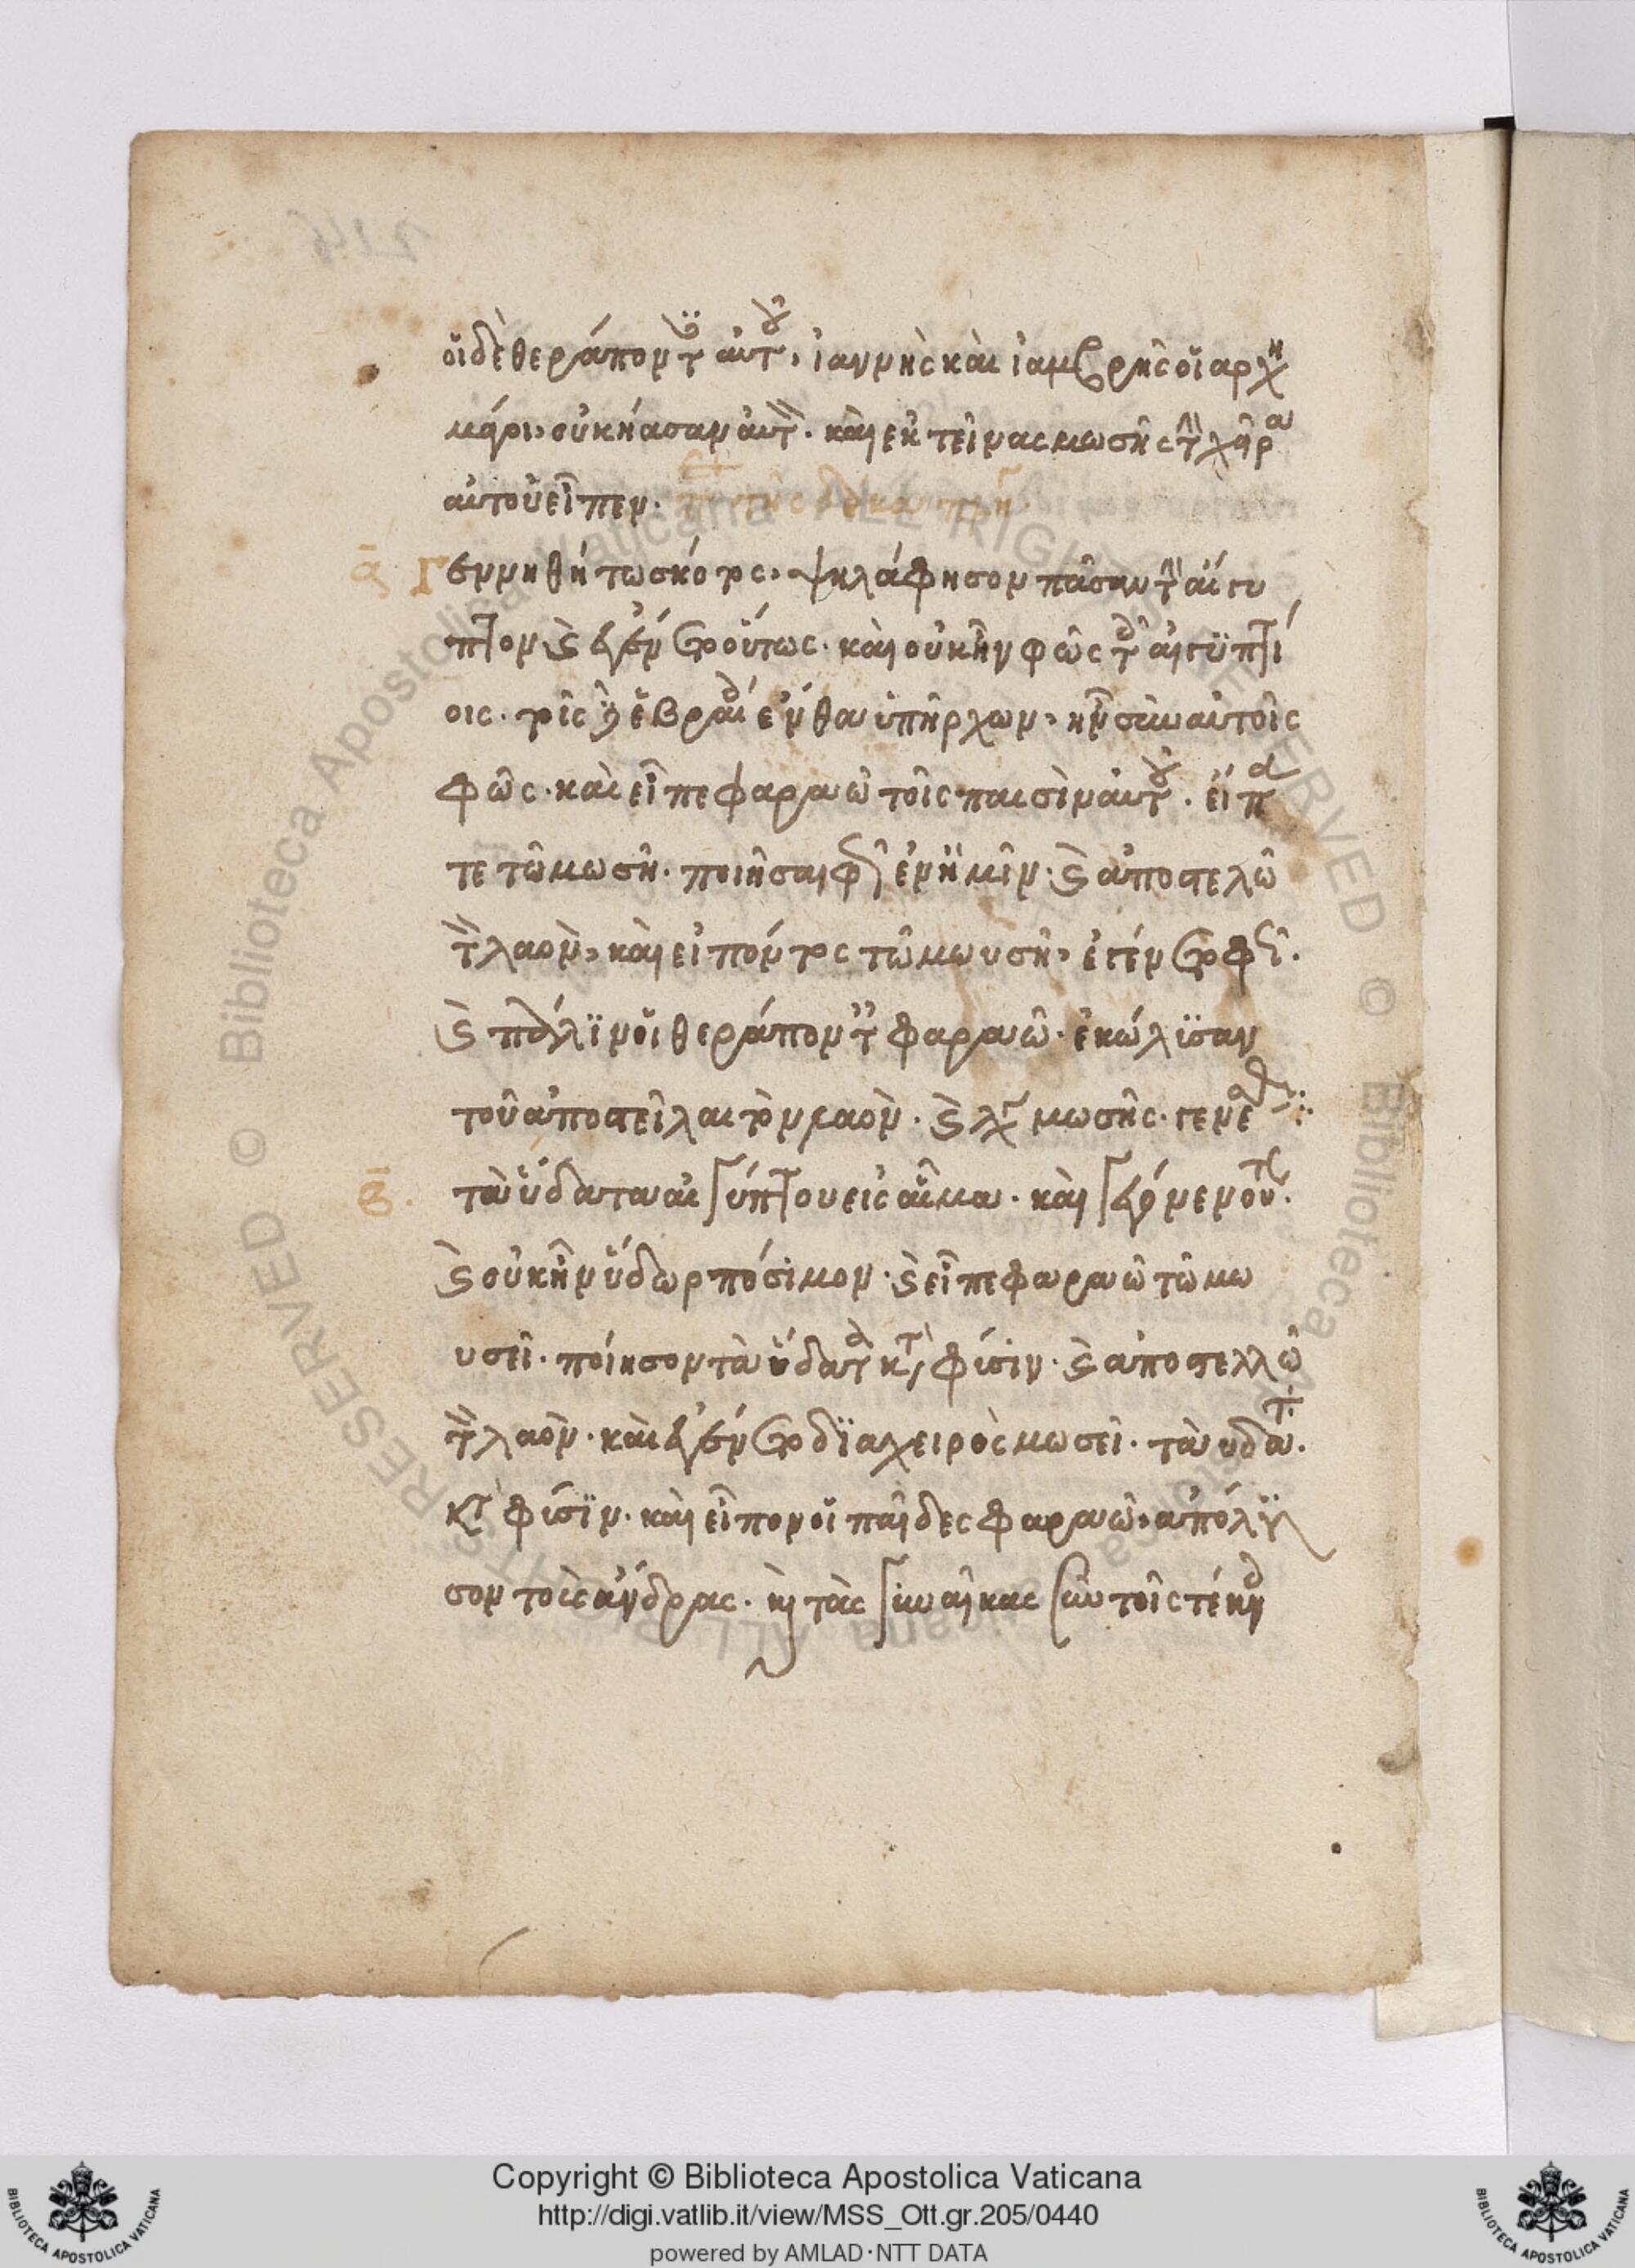 οἱ δὲ θεράποντ αὐτ, ἰαννὴς καὶ ἰαμβρῆς οἱ ἀρχη
μάγοι, οὐκ ἤασαν αὐτ. καὶ ἐκτείνας μωσῆς τ χεῖρα
αὐτοῦ εἶπεν.
ᾱ Γεννηθήτω σκότος, ψηλάφησον πᾶσαν τ αἴγυ
πτον καὶ ἐγένετο οὕτως. καὶ οὐκ ἦν φῶς τ αἰγϋπτί
οις. τοῖς δὲ ἑβραί ἔνθα ὑπῆρχων, ἦν σὺν αὐτοῖς
φῶς. καὶ εἶπε φαραὼ τοῖς παισὶν αὐτ. εἴπα
τε τῶ μωσῆ. ποιῆσαι φῶ ἐν ἡμῖν. καὶ ἀποστελῶ
τ λαὸν, καὶ εἰπόντος τῶ μωυσῆ, ἐγένετο φῶ.
καὶ πάλϊν οἱ θεράποντ φαραὼ. ἐκώλϊσαν
τοῦ ἀποστεῖλαι τὸν λαὸν. καὶ λγ μωσῆς. γενέσθ
β̄. τὰ ὕδατα αἰγύπτου εἰς αἷμα. καὶ γενόμενον τ.
καὶ οὐκ ἦν ὕδωρ πόσιμον. καὶ εἶπε φαραὼ τῶ μω
υσεῖ. ποίησον τὰ ὕδατα κτ φύσιν. καὶ ἀποστελλῶ
τ λαὸν. καὶ ἐγένετο δϊα χειρὸς μωσεῖ. τὰ υδατ.
κτ φύσϊν. καὶ εἶπον οἱ παῖδες φαραὼ, ἀπόλϋ
σον τοὺς ἄνδρας. καὶ τὰς γυναῖκας σὺν τοῖς τέκν
Copyright © Biblioteca Apostolica Vaticana
http://digi.vatlib.it/view/MSS_Ott.gr.205/0440
powered by AMLAD · NTT DATA
BIBLIOTECA APOSTOLICA VATICANA
BIBLIOTECA APOSTOLICA VATICANA